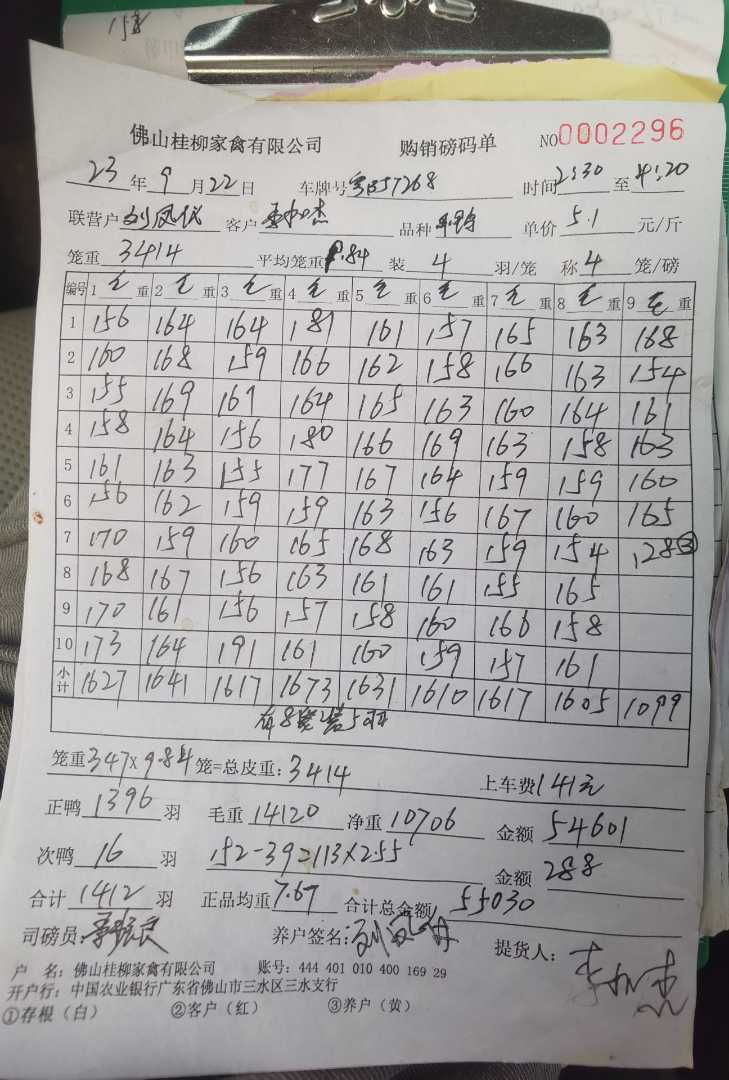 158
佛山桂柳家禽有限公司 购销磅码单 NO0002296
23年9月22日 车牌号 粤 7268 时间 2:30 至 4:20
联营户 刘凤仪 客户 李 杰 品种 单价 5.1 元/斤
笼重 3414 平均笼重 9.84 装 4 羽/笼 称 4 笼/磅
编号 1 毛重 2 毛重 3 毛重 4 毛重 5 毛重 6 毛重 7 毛重 8 毛重 9 毛重
1 156 164 164 181 161 157 165 163 168
2 160 168 159 166 162 158 166 163 154
3 155 169 161 164 165 163 160 164 161
4 158 164 156 180 166 169 163 158 163
5 161 163 155 177 167 164 159 159 160
6 156 162 159 159 163 156 167 160 165
7 170 159 160 165 168 163 159 154 128③
8 168 167 156 163 161 161 155 165
9 170 161 156 157 158 160 166 158
10 173 164 191 161 160 159 157 161
小计 1627 1641 1617 1673 1631 1610 1617 1605 1099
有8笼装5羽
笼重347×9.84笼=总皮重:3414 上车费141元
正鸭 1396 羽 毛重 14120 净重 10706 金额 54601
次鸭 16 羽 152-39=113×2.55 金额 288
合计 1412 羽 正品均重 7.67 合计总金额 55030
司磅员: 养户签名: 刘凤 提货人: 李 杰
户 名:佛山桂柳家禽有限公司 账号:444 401 010 400 169 29
开户行:中国农业银行广东省佛山市三水区三水支行
①存根(白) ②客户(红) ③养户(黄)